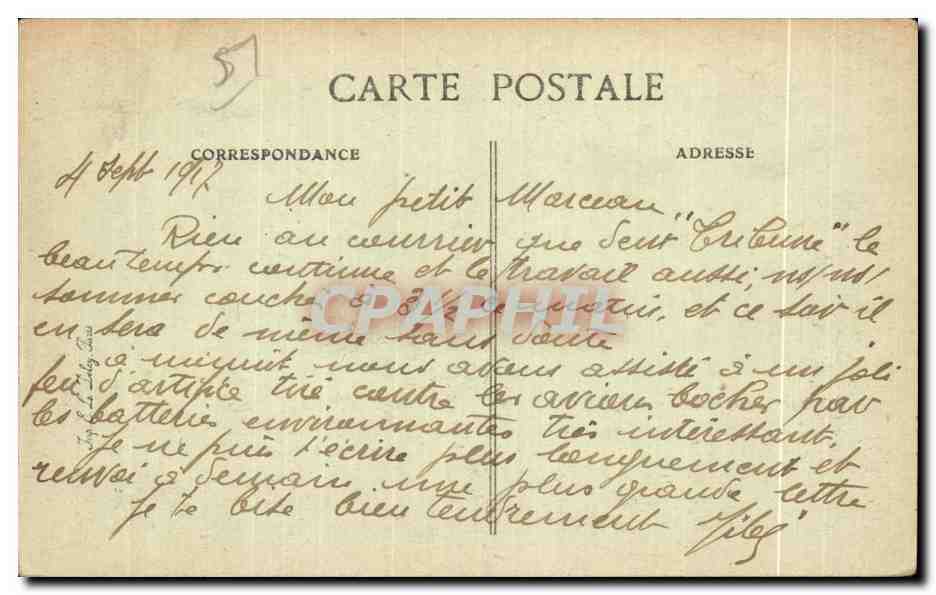 51
CARTE POSTALE
CORRESPONDANCE
ADRESSE
4 Sept 1917
Mon petit Marceau
Rien au courrier que deux "Tribune" le
beau temps continue et le travail aussi, ns ns
sommes couchés à 3 1/2 du matin, et ce soir il
en sera de même sans doute
à minuit nous avons assisté à un joli
feu d'artifice tiré contre les avions boches par
les batteries environnantes très intéressant.
Je ne puis t'écrire plus longuement et
renvoi à demain une plus grande lettre
Je te bise bien tendrement
CPAPHIL